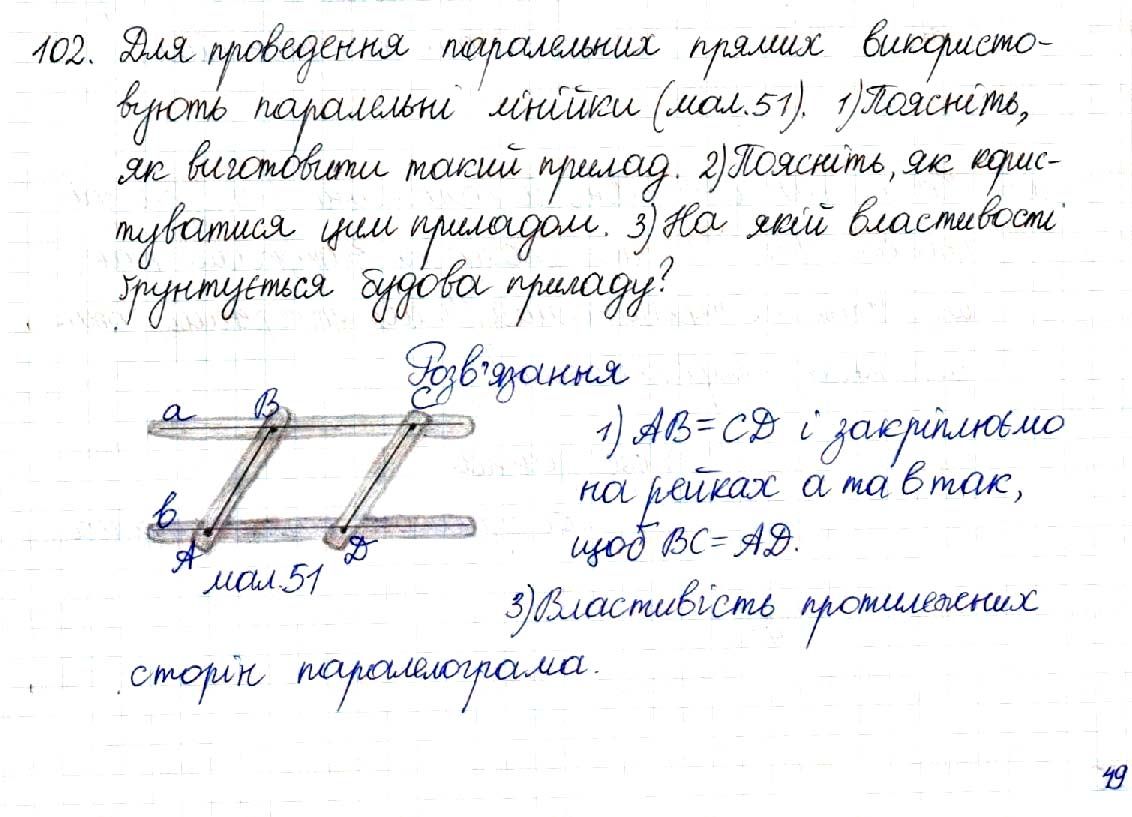 102. Для проведення паралельних прямих використо-
вують паралельні лінійки (мал.51). 1) Поясніть,
як виготовити такий прилад. 2) Поясніть, як корис-
туватися цим приладом. 3) На якій властивості
ґрунтується будова приладу?
Розв'язання
a B C
1) AB = CD і закріплюємо
на рейках a та в так,
в
щоб BC = AD.
A D
мал.51
3) Властивість протилежних
сторін паралелограма.
49